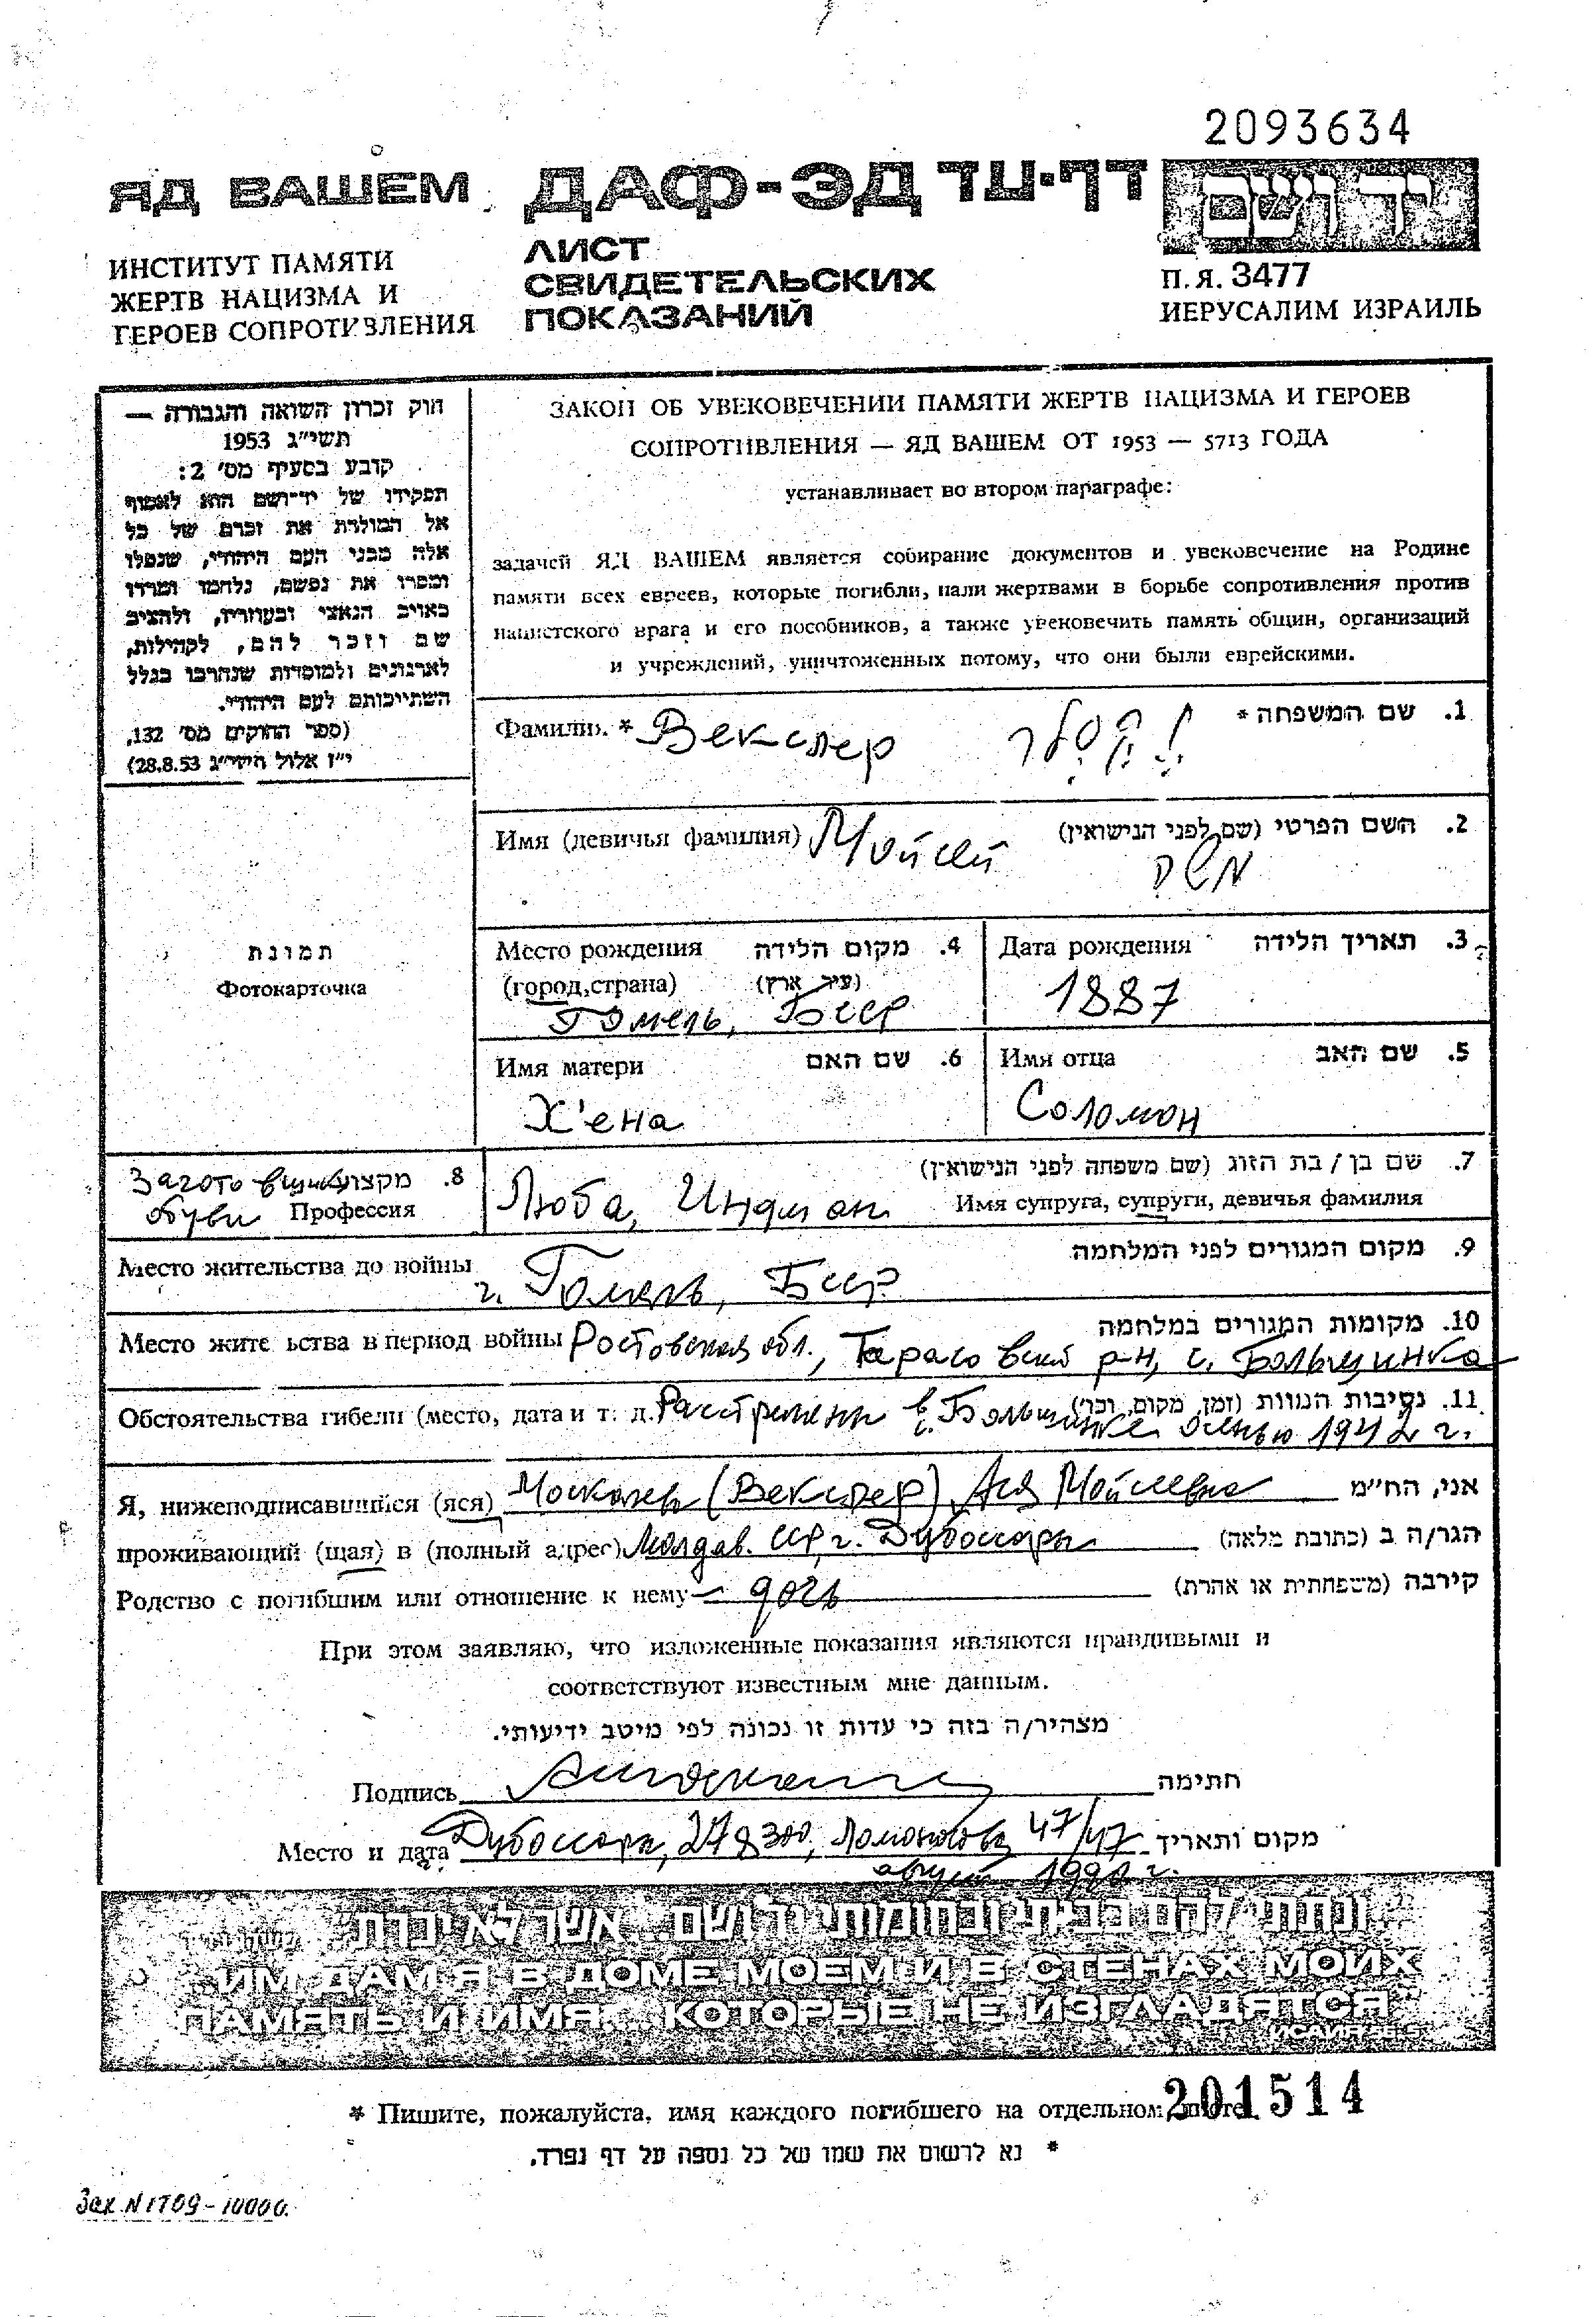 2093634
ЯД ВАШЕМ
ДАФ-ЭД דף-עד
יד ושם
ИНСТИТУТ ПАМЯТИ
ЖЕРТВ НАЦИЗМА И
ГЕРОЕВ СОПРОТИВЛЕНИЯ
ЛИСТ
СВИДЕТЕЛЬСКИХ
ПОКАЗАНИЙ
П.Я. 3477
ИЕРУСАЛИМ ИЗРАИЛЬ
חוק זכרון השואה והגבורה —
תשי״ג 1953
קובע בסעיף מס׳ 2:
תפקידו של יד־ושם הוא לאסוף
אל המולדת את זכרם של כל
אלה מבני העם היהודי, שנפלו
ומסרו את נפשם, נלחמו ומרדו
באויב הנאצי ובעוזריו, ולהציב
שם וזכר להם, לקהילות,
לארגונים ולמוסדות שנחרבו בגלל
השתייכותם לעם היהודי.
(ספר החוקים מס׳ 132,
י״ז אלול תשי״ג 28.8.53)
ЗАКОН ОБ УВЕКОВЕЧЕНИИ ПАМЯТИ ЖЕРТВ НАЦИЗМА И ГЕРОЕВ
СОПРОТИВЛЕНИЯ — ЯД ВАШЕМ ОТ 1953 — 5713 ГОДА
устанавливает во втором параграфе:
задачей ЯД ВАШЕМ является собирание документов и увековечение на Родине
памяти всех евреев, которые погибли, пали жертвами в борьбе сопротивления против
нацистского врага и его пособников, а также увековечить память общин, организаций
и учреждений, уничтоженных потому, что они были еврейскими.
1. שם המשפחה *
Фамилия * Векслер וקסלר
2. השם הפרטי (שם לפני הנישואין)
Имя (девичья фамилия) Мойсей
משה
תמונת
Фотокарточка
3. תאריך הלידה
Дата рождения
1887
4. מקום הלידה
Место рождения
(город, страна) (עיר, ארץ)
Гомель, БССР
5. שם האב
Имя отца
Соломон
6. שם האם
Имя матери
Х'ена
7. שם בן / בת הזוג (שם משפחה לפני הנישואין)
Люба, Индман Имя супруга, супруги, девичья фамилия
8. מקצוע
Заготовщик
обуви Профессия
9. מקום המגורים לפני המלחמה
Место жительства до войны
г. Гомель, БССР
10. מקומות המגורים במלחמה
Место жите ьства в период войны Ростовская обл., Тарасовский р-н, с. Большинка
11. נסיבות המוות (זמן, מקום, וכו׳)
Обстоятельства гибели (место, дата и т. д. Расстрелян в с. Большинке осенью 1942 г.
אני, הח״מ
Я, нижеподписавшийся (яся) Москалец (Векслер) Ася Мойсеевна
הגר/ה ב (כתובת מלאה)
проживающий (щая) в (полный адрес) Молдав. ССР, г. Дубоссары
קירבה (משפחתית או אחרת)
Родство с погибшим или отношение к нему — дочь
При этом заявляю, что изложенные показания являются правдивыми и
соответствуют известным мне данным.
מצהיר/ה בזה כי עדות זו נכונה לפי מיטב ידיעותי.
Подпись חתימה
Место и дата Дубоссары, 278300, Ломоносова 47/47 מקום ותאריך
август 1990 г.
ונתתי להם בביתי ובחומותי יד ושם... אשר לא יכרת
ИМ ДАМ Я В ДОМЕ МОЕМ И В СТЕНАХ МОИХ
ПАМЯТЬ И ИМЯ... КОТОРЫЕ НЕ ИЗГЛАДЯТСЯ
ИСАИЯ 56-5
201514
* Пишите, пожалуйста, имя каждого погибшего на отдельном листе
* נא לרשום את שמו של כל נספה על דף נפרד.
Зак. N 1709-10000.